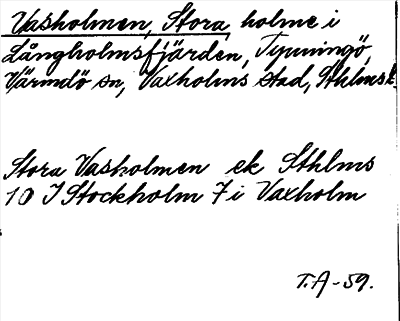 Vasholmen, Stora, holme i
Långholmsfjärden, Tynningö,
Värmdö sn, Vaxholms stad, Sthlms l.
Stora Vasholmen ek Sthlms
10 I Stockholm 7 i Vaxholm
T.A-59.